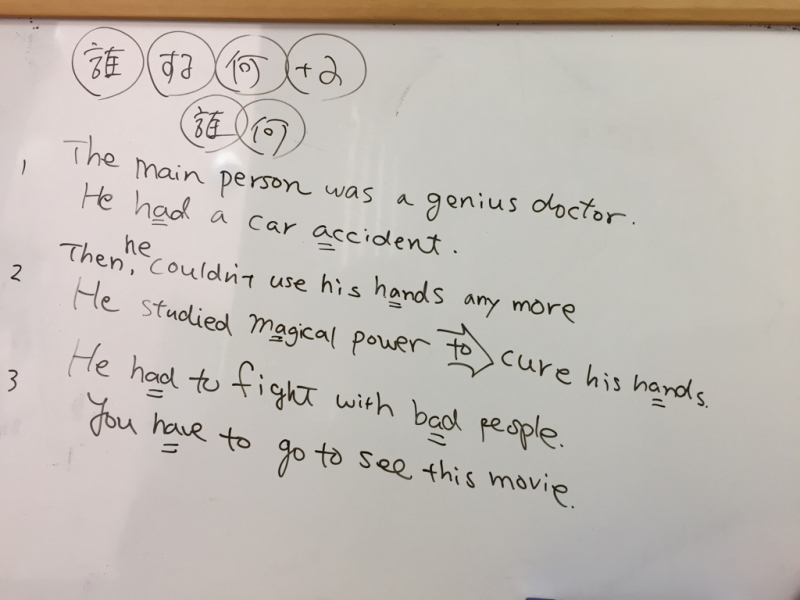 誰 する 何 +α
誰 何
1 The main person was a genius doctor.
He had a car accident.
2 Then, he couldn't use his hands any more
He studied magical power to cure his hands.
3 He had to fight with bad people.
You have to go to see this movie.